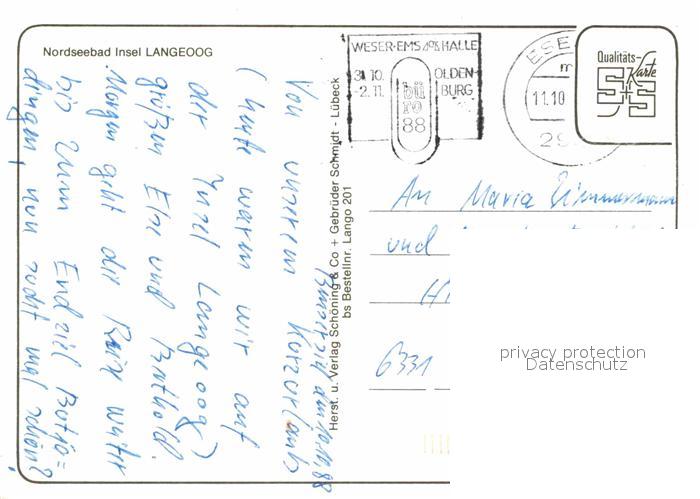 Nordseebad Insel LANGEOOG
Von unserem Kurzurlaub
(heute waren wir auf
der Insel Langeoog)
grüßen Else und Berthold.
Morgen geht die Reise weiter
bis zum Endziel
dingen, nun recht mal schön!
Herst. u. Verlag Schöning & Co + Gebrüder Schmidt - Lübeck
bs Bestellnr. Lango 201
WESER-EMS HALLE
31.10.
-2.11.
bü
ro
88
OLDEN
BURG
ESE
11.10
29
Qualitäts-
Karte
S+S
An Maria Zimmermann
und
6331
privacy protection
Datenschutz